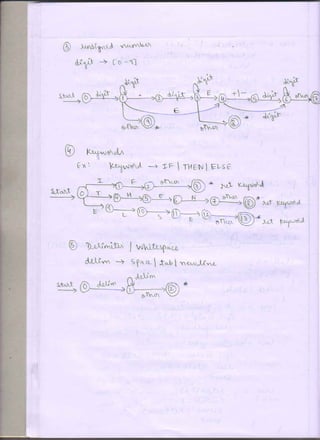 ③ Unsigned number
digit → [0-9]
digit digit digit
Start 0 digit 1 . 2 digit 3 E 4 +|- 5 digit 6 other
E digit
other other *
④ Keywords
Ex: Keyword → IF | THEN | ELSE
I F other * ret keyword
Start 0 T H E N other * ret keyword
E L S E other * ret keyword
⑤ Delimiter / Whitespace
delim → space | tab | newline
delim
Start 0 delim 1 other 2 *